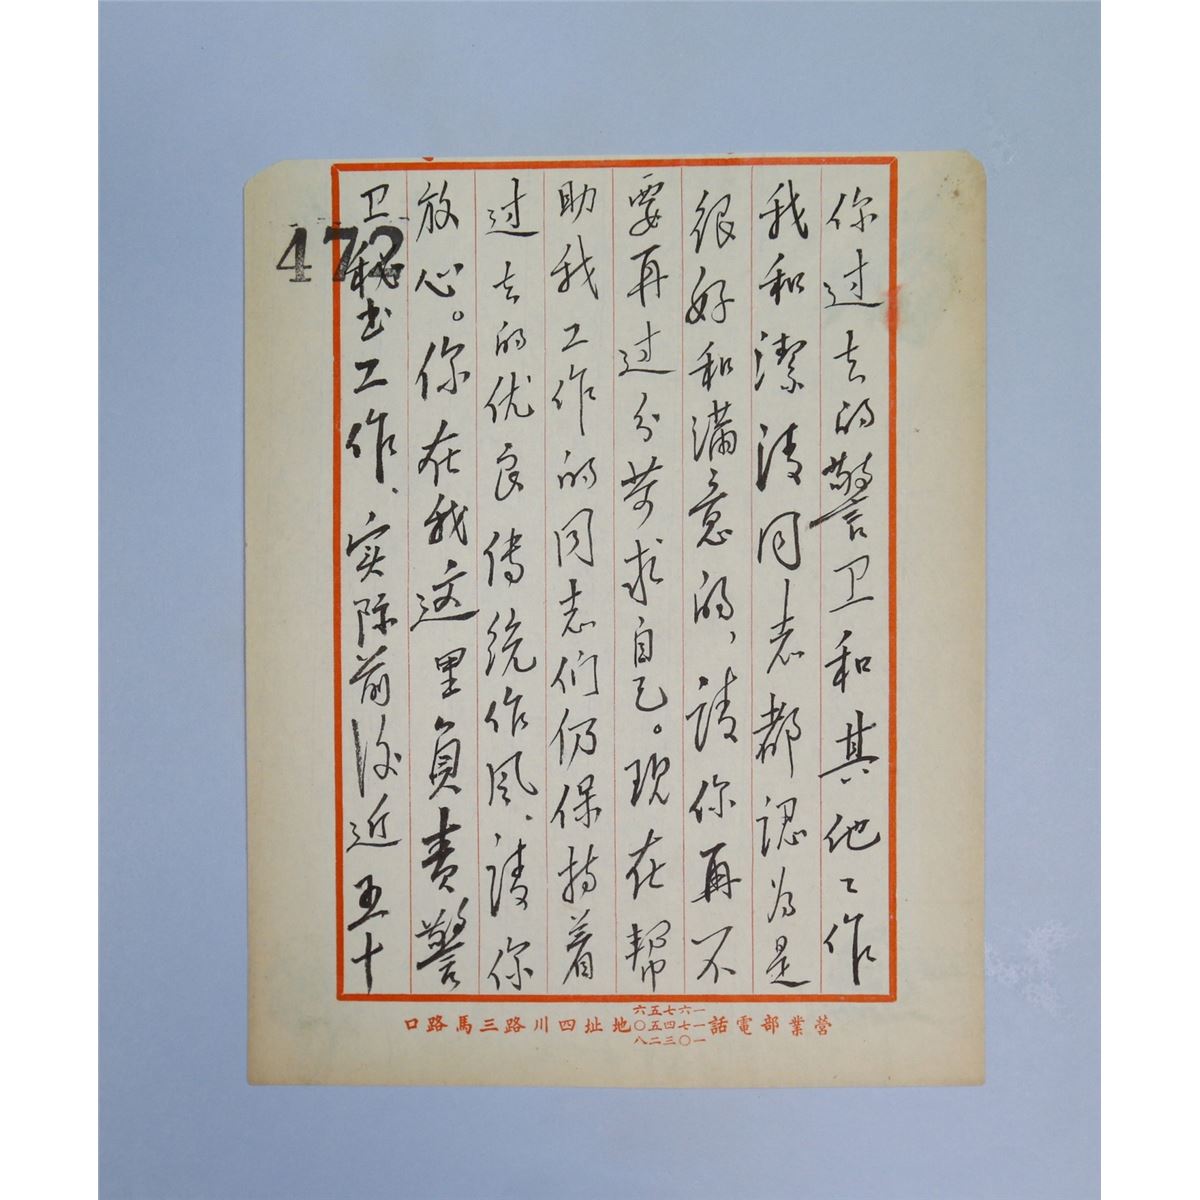 你过去的警卫和其他工作
我和潔清同志都認为是
很好和满意的，请你再不
要再过分苛求自己。現在帮
助我工作的同志们仍保持着
过去的优良传统作风、请你
放心。你在我这里負责警
卫秘书工作、实际前後近五十
472
營業部電話
一六七五六
一七四五〇
一〇三二八
地址四川路三馬路口